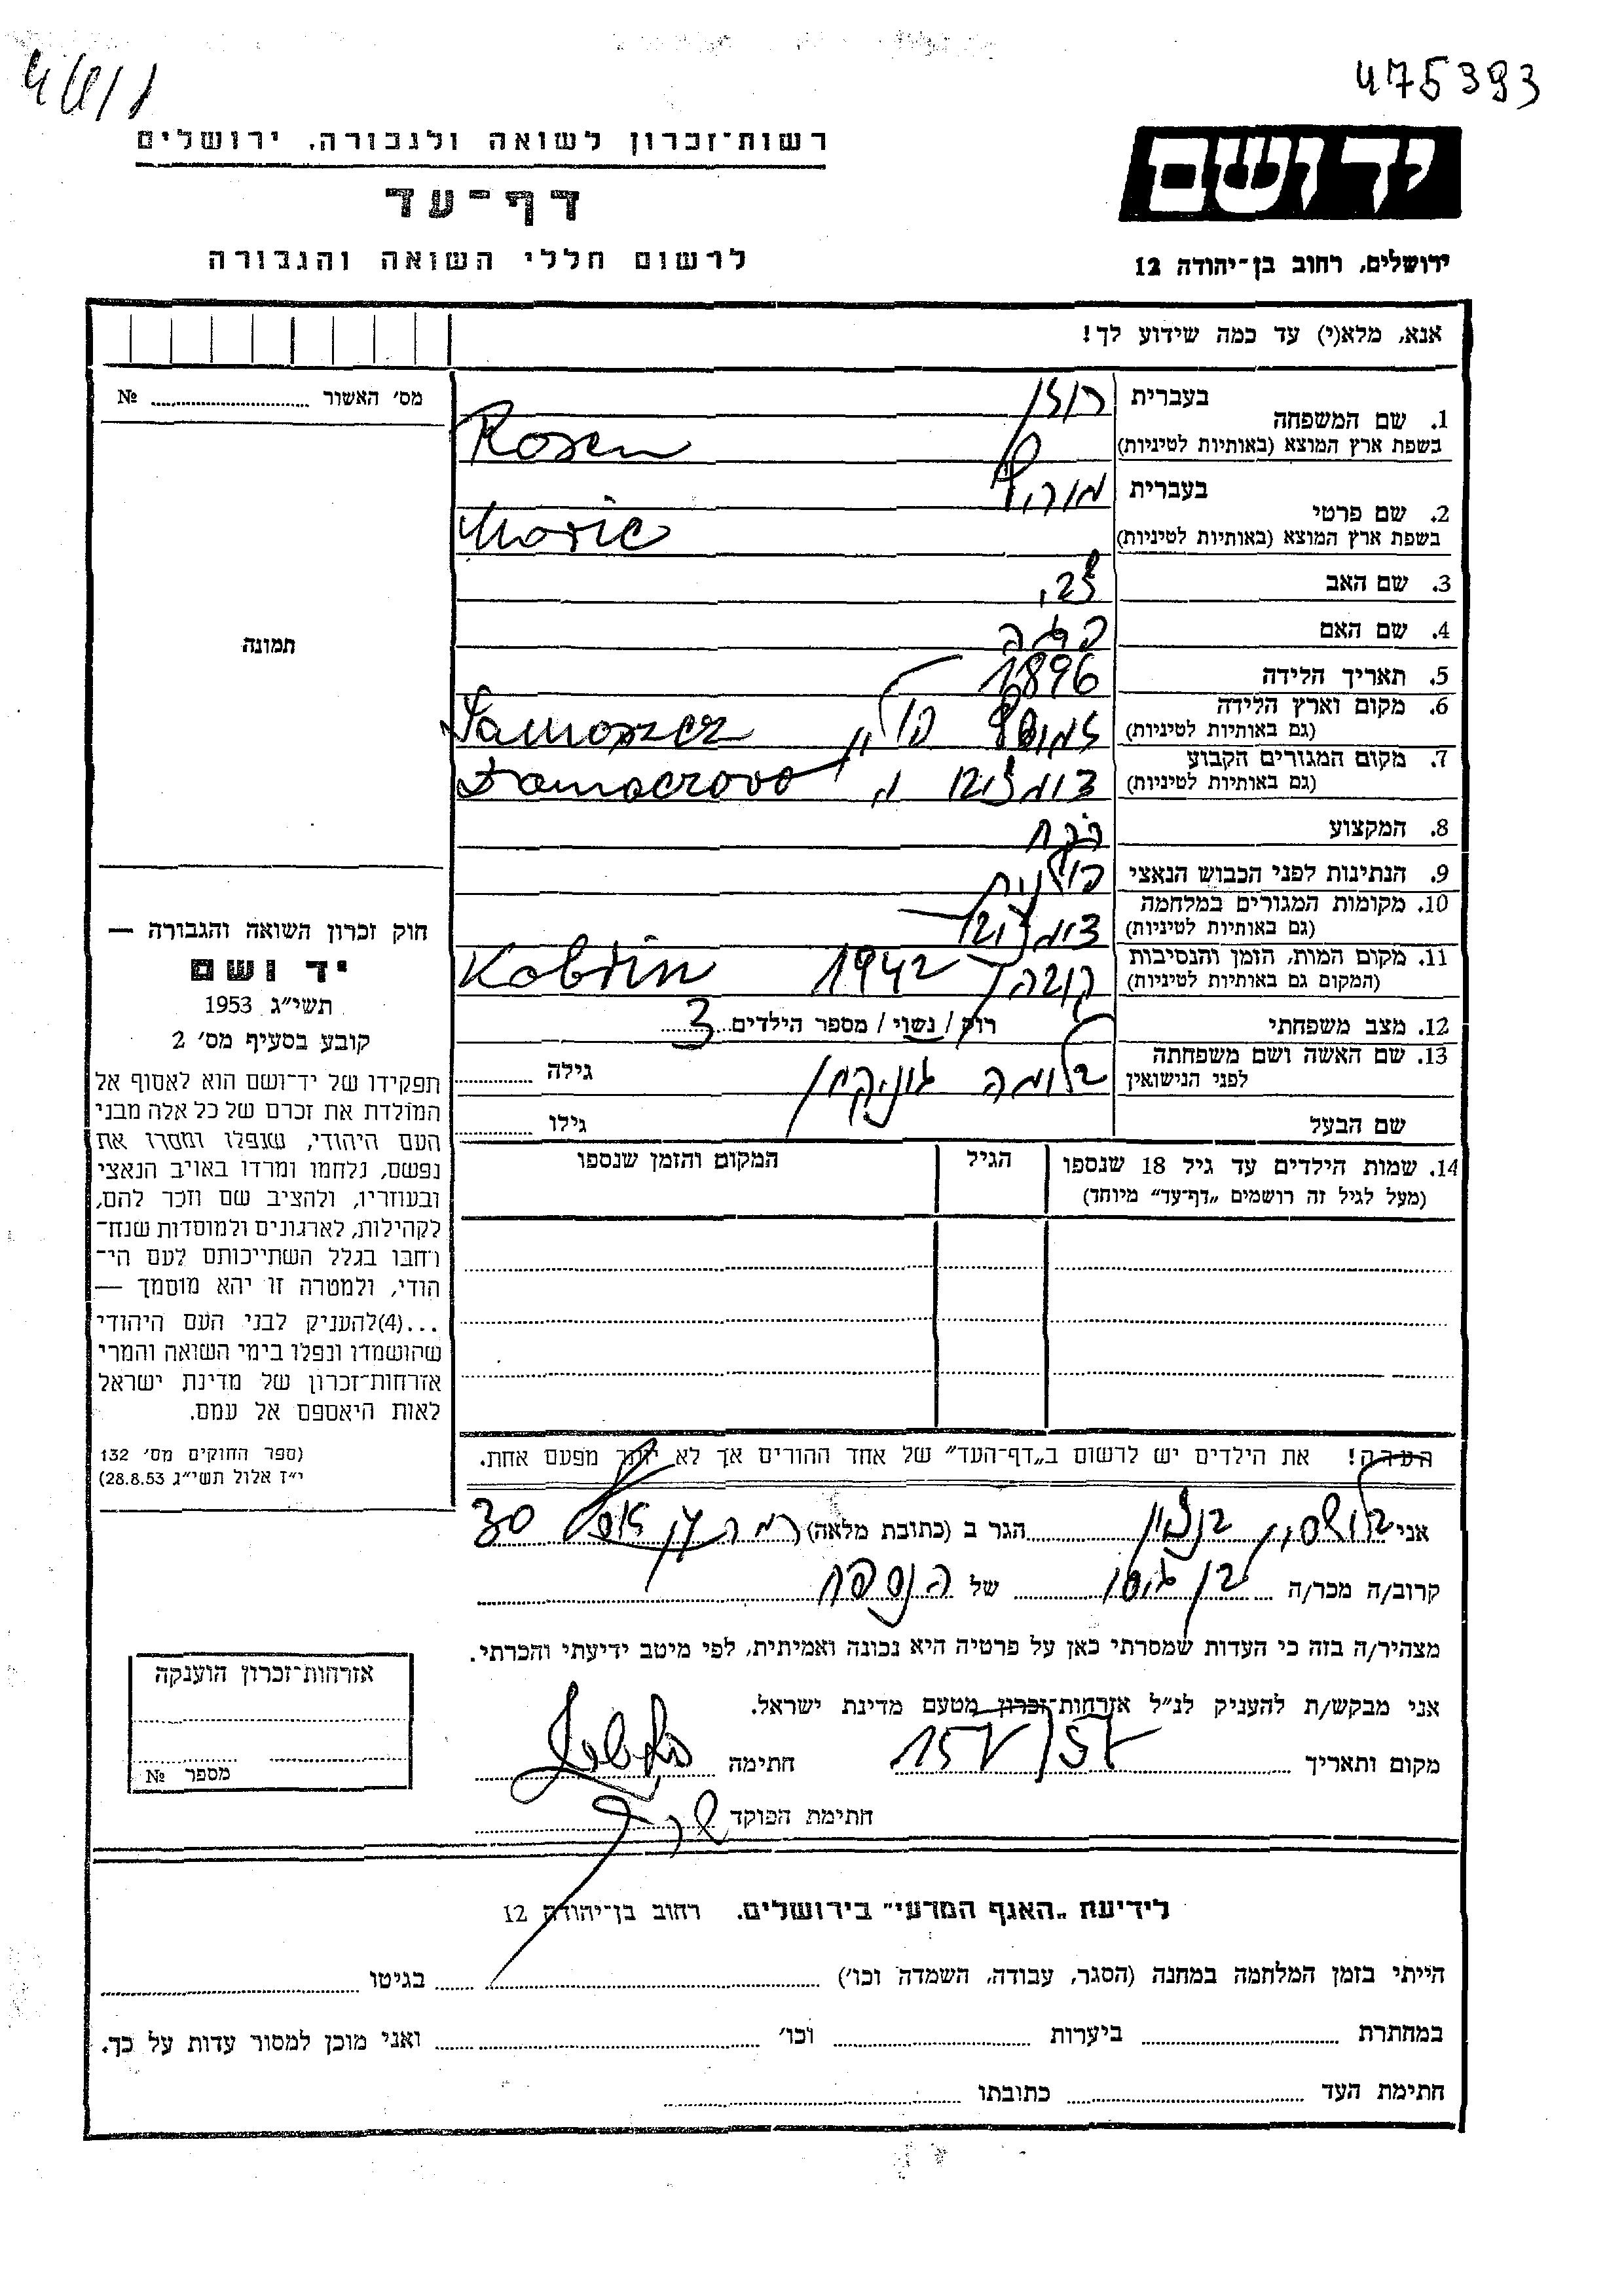 475393
רשות־זכרון לשואה ולגבורה. ירושלים
יד ושם
דף־עד
לרשום חללי השואה והגבורה
ירושלים, רחוב בן־יהודה 12
אנא, מלא(י) עד כמה שידוע לך!
מס׳ האשור № 
1. שם המשפחה
בעברית רוזן
בשפת ארץ המוצא (באותיות לטיניות) Rosen
2. שם פרטי
בעברית
בשפת ארץ המוצא (באותיות לטיניות) Moric
3. שם האב
4. שם האם
5. תאריך הלידה 1896
6. מקום וארץ הלידה
(גם באותיות לטיניות) פולין Samoszcz
7. מקום המגורים הקבוע
(גם באותיות לטיניות)
8. המקצוע רוקח
9. הנתינות לפני הכבוש הנאצי פולנית
10. מקומות המגורים במלחמה
(גם באותיות לטיניות)
11. מקום המות, הזמן והנסיבות
(המקום גם באותיות לטיניות) קוברין 1942 Kobrin
12. מצב משפחתי רווק / נשוי / מספר הילדים 3
13. שם האשה ושם משפחתה
לפני הנישואין גילה
שם הבעל גילו
14. שמות הילדים עד גיל 18 שנספו
(מעל לגיל זה רושמים „דף־עד״ מיוחד)
הגיל
המקום והזמן שנספו
תמונה
חוק זכרון השואה והגבורה —
יד ושם
תשי״ג 1953
קובע בסעיף מס׳ 2
תפקידו של יד־ושם הוא לאסוף אל
המולדת את זכרם של כל אלה מבני
העם היהודי, שנפלו ומסרו את
נפשם, נלחמו ומרדו באויב הנאצי
ובעוזריו, ולהציב שם וזכר להם,
לקהילות, לארגונים ולמוסדות שנח־
רחבו בגלל השתייכותם לעם הי־
הודי, ולמטרה זו יהא מוסמך —
...(4)להעניק לבני העם היהודי
שהושמדו ונפלו בימי השואה והמרי
אזרחות־זכרון של מדינת ישראל
לאות היאספם אל עמם.
(ספר החוקים מס׳ 132
י״ז אלול תשי״ג 28.8.53)
הערה! את הילדים יש לרשום ב„דף־העד״ של אחד ההורים אך לא יותר מפעם אחת.
אני הגר ב (כתובת מלאה) רמת גן 30
קרוב/ה מכר/ה של הנספה
מצהיר/ה בזה כי העדות שמסרתי כאן על פרטיה היא נכונה ואמיתית, לפי מיטב ידיעתי והכרתי.
אני מבקש/ת להעניק לנ״ל אזרחות־זכרון מטעם מדינת ישראל.
מקום ותאריך 15 V/57 חתימה
חתימת הפוקד
אזרחות־זכרון הוענקה
מספר №
לידיעת „האגף המדעי״ בירושלים. רחוב בן־יהודה 12
הייתי בזמן המלחמה במחנה (הסגר, עבודה, השמדה וכו׳) בגיטו
במחתרת ביערות וכו׳ ואני מוכן למסור עדות על כך.
חתימת העד כתובתו